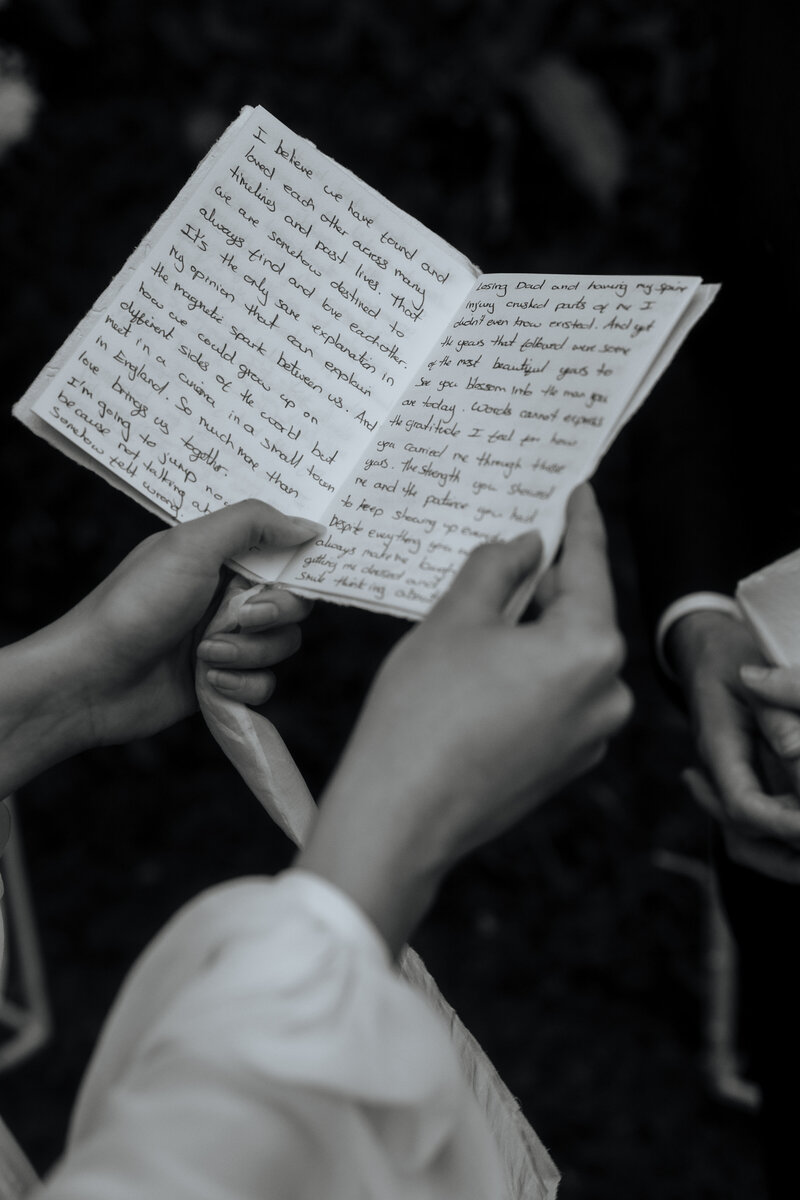 I believe we have found and
loved each other across many
timelines and past lives. That
we are somehow destined to
always find and love eachother.
It's the only sane explanation in
my opinion that can explain
the magnetic spark between us. And
how we could grow up on
different sides of the world but
meet in a cinema in a small town
in England. So much more than
love brings us together.
I'm going to jump
because not talking
somehow felt wrong.
Losing Dad and having my spine
injury crushed parts of me I
didn't even know existed. And yet
the years that followed were some
of the most beautiful years to
see you blossom into the man you
are today. Words cannot express
the gratitude I feel for how
you carried me through those
years. The strength you showed
me and the patience you had
to keep showing up
Despite everything you
always make me
getting me dressed and
smile thinking